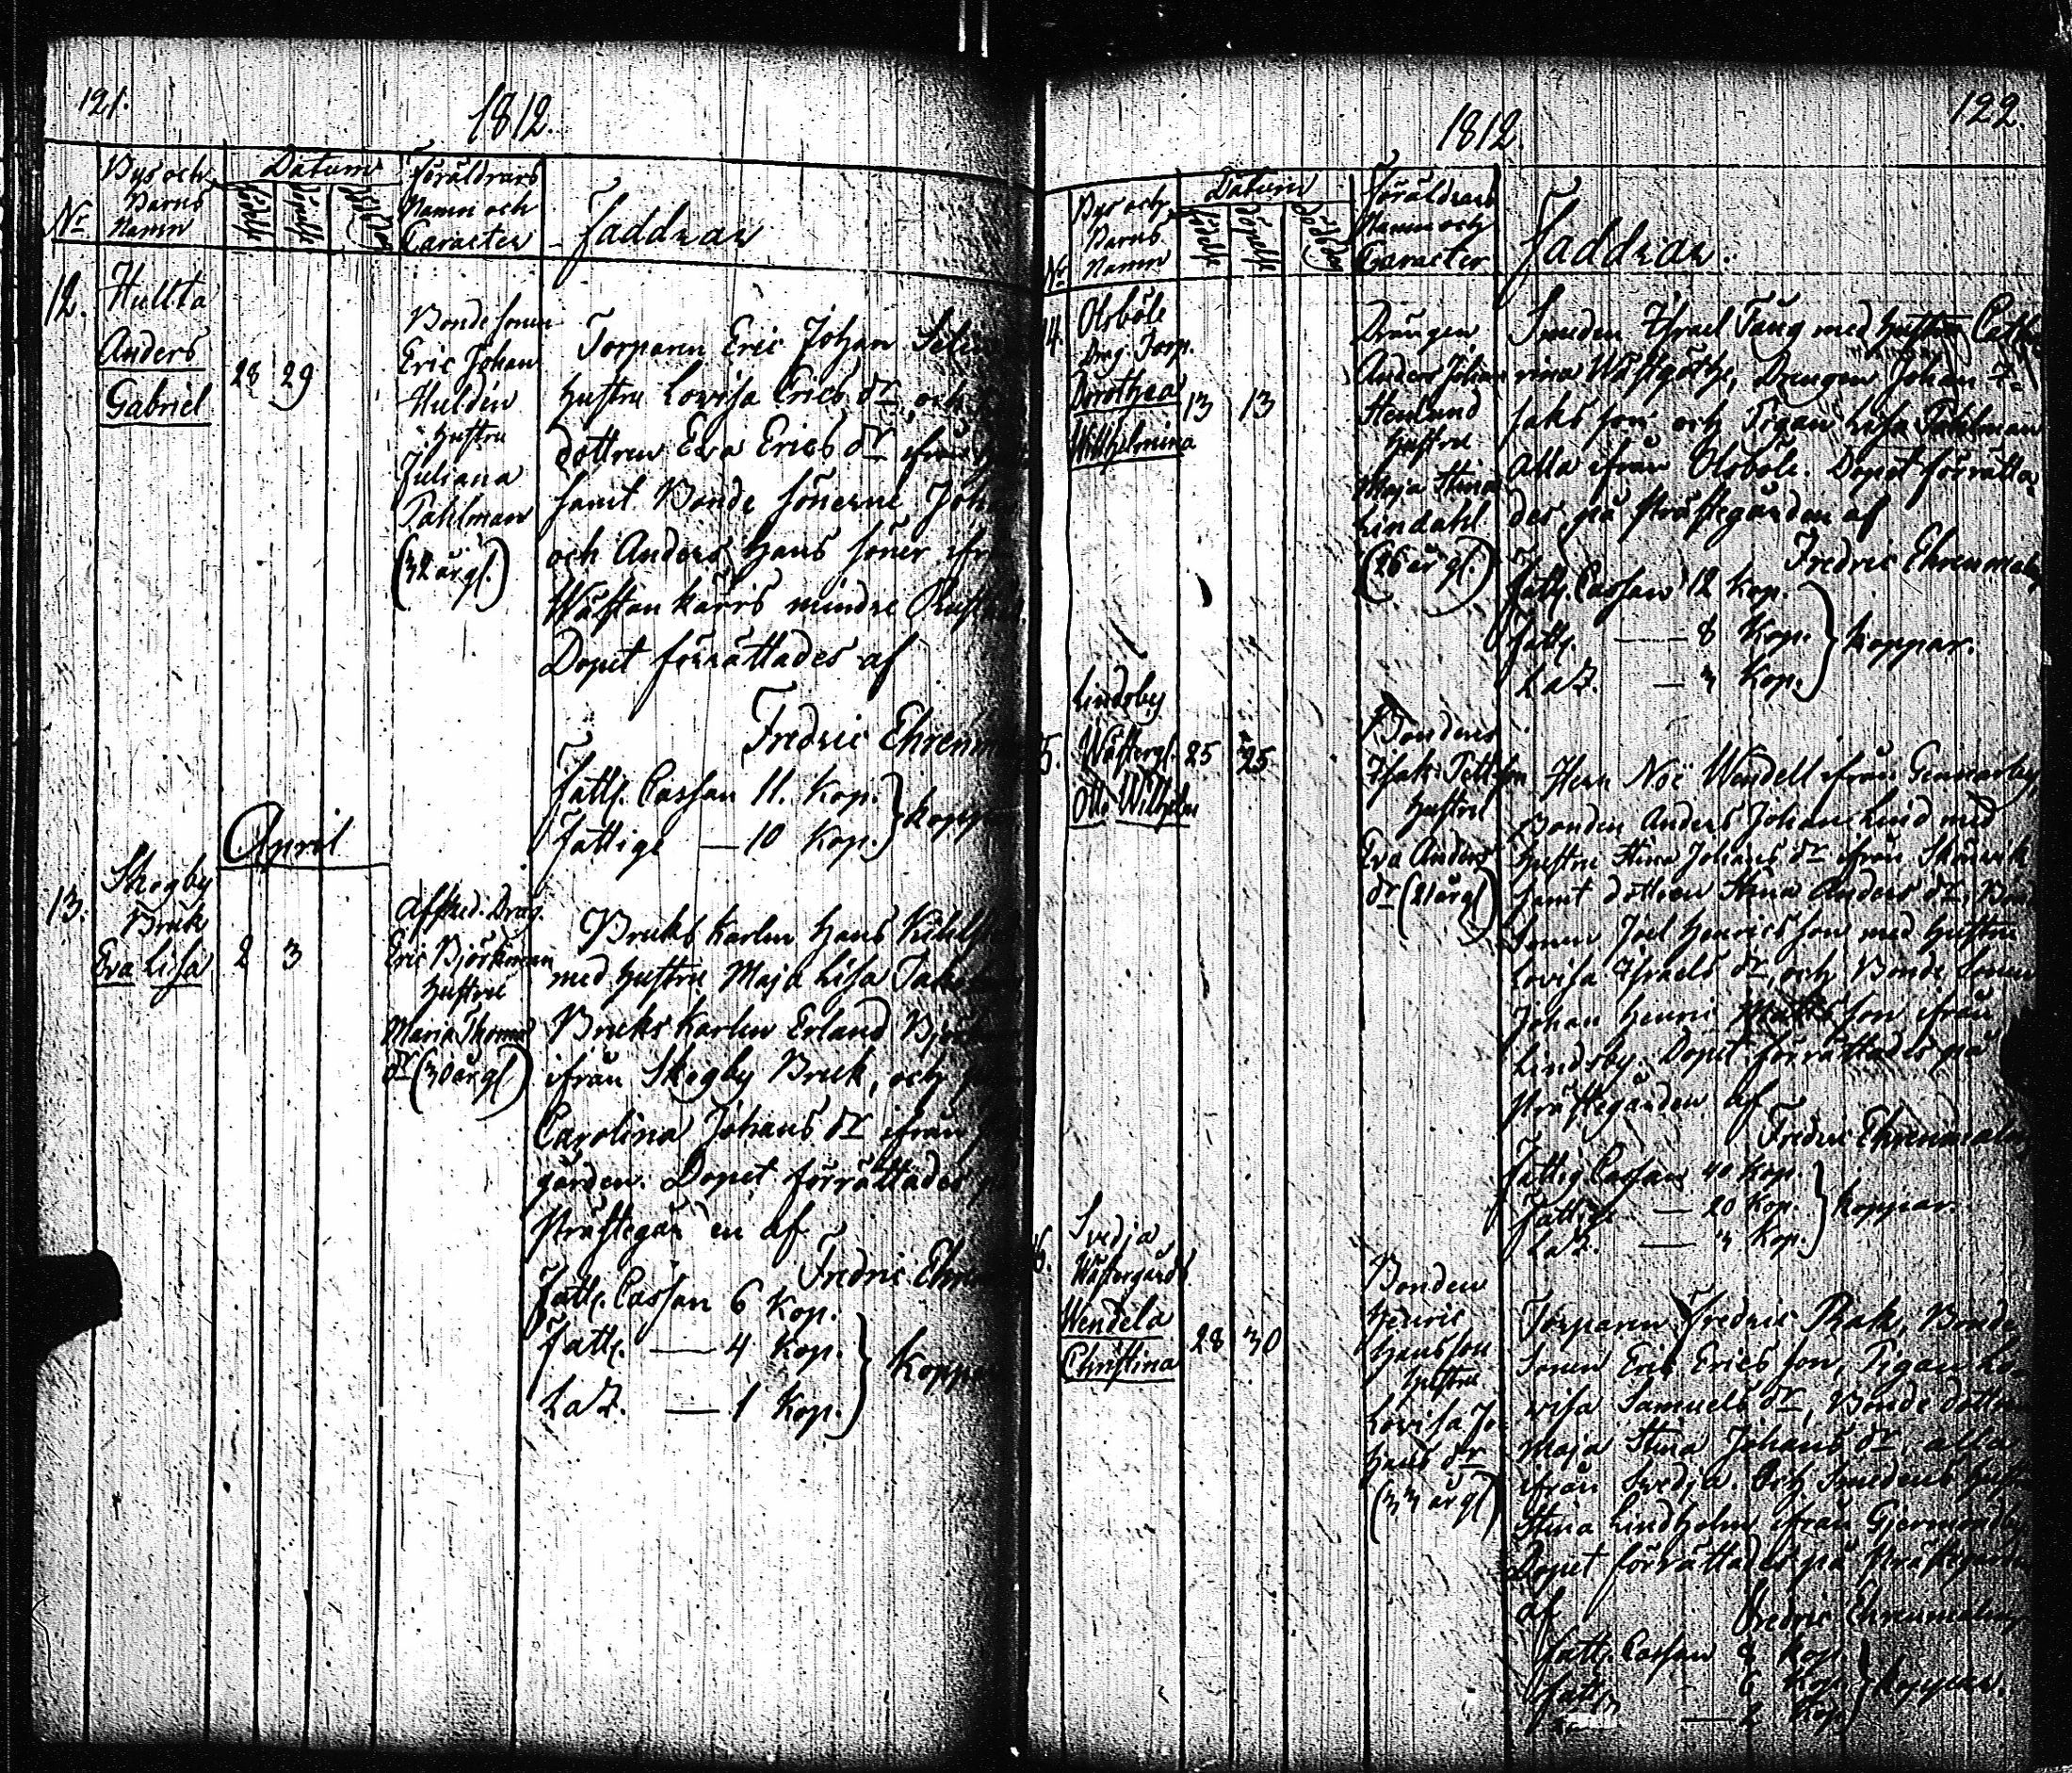 121.
1812.
Nr
Bys och
Barns
Namn
Datum
födelse
döpelse
Föräldrars
Namn och
Caracter
Faddrar
12.
Hullta
Anders
Gabriel
28 29
Bonde sonen
Eric Johan
Huldin
hustru
Juliana
Pahlman
(32 år gl.)
Torparen Eric Johan
hustru Lovisa Erics dr, och
dottren Eva Erics dr ifrån
samt Bonde sönerne Joh
och Anders Hans söner ifr
Wästankärrs mindre Rust
Dopet förrättades af
Fredric Ehrenm
fattig. Cassan 11. Kop.
fattige — 10 Kop. } kopp
April
13.
Skogby
Bruk
Eva Lisa
2 3
Afsked. Drag.
Eric Björkman
hustru
Maria Thomas
dr (30 år gl)
Bruks karlen Hans
med hustru Maja Lisa
Bruks Karlen Erland Björ
ifrån Skogby Bruk, och
Carolina Johans dr ifrån
gården. Dopet förrättades
Prästegår en af
Fredric Ehre
fattig. Cassan 6 Kop.
fattig. — 4 Kop.
LaZ. — 1 Kop. } Koppa
122.
1812.
Nr
Bys och
Barns
Namn
Datum
födelse
döpelse
Föräldrars
Namn och
Caracter
Faddrar.
4.
Olsböle
Drag. Torp.
Dorothea
Willhelmina
13 13
Drängen
Anders Johan
Stenlund
hustru
Maja Stina
Lindahl
(26 år gl.)
Smeden Israel Fang med hustru Cath
rina Wästgöthe, Drengen Johan I-
saks son och Pigan Lisa Pahlman
Alla ifrån Olsböle. Dopet förrätta-
des på Prästegården af
Fredric Ehrenmalm
fattig. Cassan 12 Kop.
fattig. — 8 Kop. } koppar.
LaZ. — 3 Kop.
5.
Lindsby
Wästergl.
Otto Wilhelm
25 25
Bondens
Isak
hustru
Eva Anders
dr (21 år gl)
Herr Noë Wendell ifrån Gennarby,
Bonden Anders Johan Lind med
hustru Stina Johans dr ifrån Skåwik
samt dottren Stina Anders dr, Bonde
Sonen Joel Henrics son med hustru
Lovisa Israels dr, och Bonde Sonen
Johan Henric Matts son ifrån
Lindsby. Dopet förrättades på
Prästegården af
Fredric Ehrenmalm
fattig Cassan 40 Kop.
fattige — 20 Kop. } koppar.
LaZ. — 3 Kop.
6.
Svedja
Wästergårds
Wendela
Christina
28 30
Bonden
Henric
Hansson
hustru
Lovisa Jo
hans dr
(33 år gl)
Torparen Fredric Rak, Bonde
Sonen Eric Erics son, Pigan Lo-
visa Samuels dr, Bonde dotter
Maja Stina Johans dr, alla
ifrån Svedja. Och Smedens hust
Stina Lindholm ifrån Gjermundby
Dopet förrättades på Prästegård
af Fredric Ehrenmalm,
fatt. Cassan 8 Kop.
fattig — 6 Kop. } koppar.
— 2 Kop.